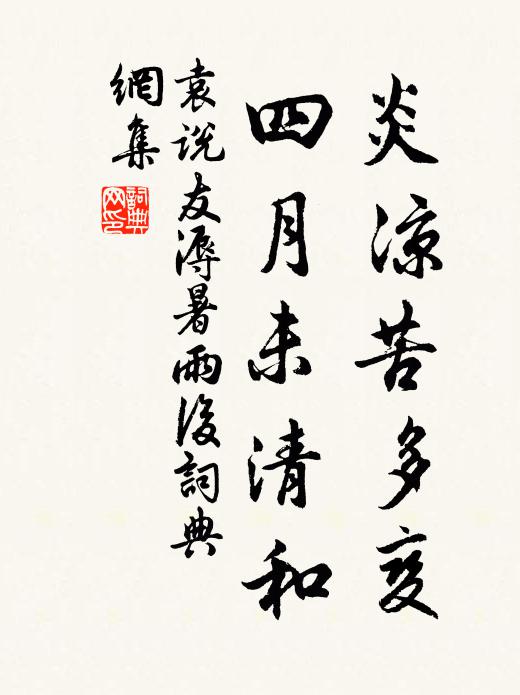 炎涼苦多变
四月未清和
袁説友溽暑雨後詞典
網集
詞典網印